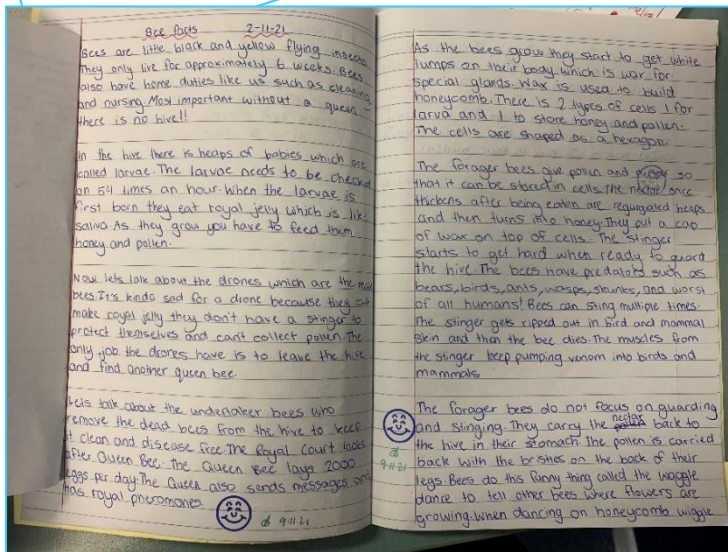 Bee facts 2-11-21
Bees are little black and yellow flying insects
They only live for approximately 6 weeks. Bees
also have home duties like us such as cleaning
and nursing. Most important without a queen
there is no hive!!
In the hive there is heaps of babies which are
called larvae. The larvae needs to be checked
on 54 times an hour. When the larvae is
first born they eat royal jelly which is like
saliva. As they grow you have to feed them
honey and pollen.
Now lets talk about the drones which are the male
bees. It's kinda sad for a drone because they cant
make royal jelly they don't have a stinger to
protect themselves and can't collect pollen. The
only job the drones have is to leave the hive
and find another queen bee.
Lets talk about the undertaker bees who
remove the dead bees from the hive to keep
it clean and disease free. The Royal Court looks
after Queen Bee. The Queen Bee lays 2000
eggs per day. The Queen also sends messages and
has royal pheromones
9-11-21
As the bees grow they start to get white
lumps on their body which is wax for
special glands. Wax is used to build
honeycomb. There is 2 types of cells 1 for
larva and 1 to store honey and pollen.
The cells are shaped as a hexagon.
The forager bees give pollen and so
that it can be stored in cells. The nectar once
thickens after being eaten are regugated heaps
and then turns into honey. They put a cap
of wax on top of cells. The stinger
starts to get hard when ready to guard
the hive. The bees have predators such as
bears, birds, ants, wasps, skunks, and worst
of all humans! Bees can sting multiple times.
The stinger gets ripped out in bird and mammal
skin and then the bee dies. The muscles from
the stinger keep pumping venom into birds and
mammals.
The forager bees do not focus on guarding
and stinging. They carry the nectar back to
the hive in their stomach the pollen is carried
back with the bristles on the back of their
legs. Bees do this funny thing called the waggle
dance to tell other bees where flowers are
growing. When dancing on honeycomb wiggle
9-11-21